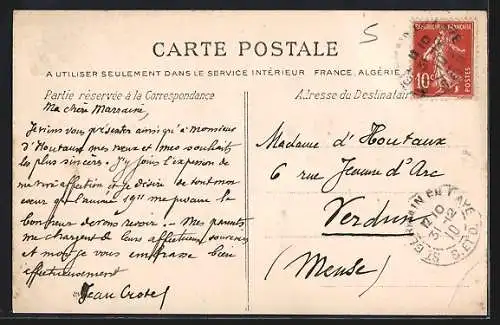 5
CARTE POSTALE
A UTILISER SEULEMENT DANS LE SERVICE INTÉRIEUR FRANCE, ALGÉRIE,
Partie réservée à la Correspondance
Adresse du Destinataire
Ma chère Marraine,
Je viens vous présenter ainsi qu'à monsieur
d'Houtaux mes vœux et mes souhaits
les plus sincères. J'y joins l'expression de
ma vive affection et je désire de tout mon
cœur que l'année 1911 me puisse le
bonheur de vous revoir. Mes parents
me chargent de leurs affectueux souvenirs
et moi je vous embrasse bien
affectueusement
Jean
Madame d'Houtaux
6 rue Jeanne d'Arc
Verdun
(Meuse)
RÉPUBLIQUE FRANÇAISE
10c
POSTES
ST GERMAIN EN LAYE
31-12
10
S. ET O.